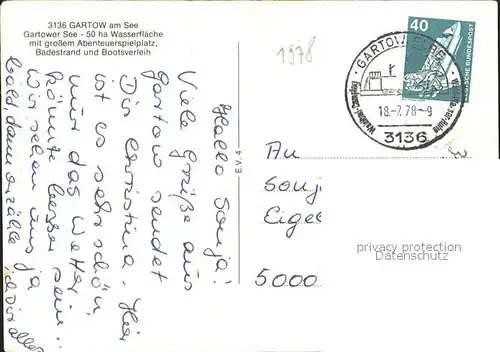 3136 GARTOW am See
Gartower See - 50 ha Wasserfläche
mit großem Abenteuerspielplatz,
Badestrand und Bootsverleih
1978
Hallo Sonja!
Viele Grüße aus
Gartow sendet
Dir Christina. Hier
ist es sehr schön
nur das Wetter
könnte besser sein.
Wir sehen uns ja
bald dann erzähle
ich Dir alles
E.V. 4
GARTOW
18.-7.78-9
3136
40
DEUTSCHE BUNDESPOST
An
Sonj
Eigel
5000
privacy protection
Datenschutz